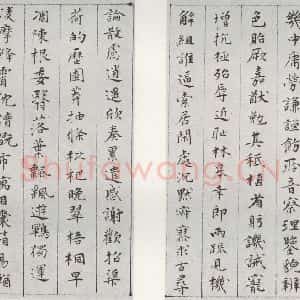 幾中庸勞謙謹飭聆音察理鑒貌辨
色貽厥嘉猷勉其祗植省躬譏誡寵
增抗極殆辱近恥林皋幸即兩疏見機
解組誰逼索居閒處沉默寂寥求古尋
論散慮逍遙欣奏累遣慼謝歡招渠
荷的歷園莽抽條枇杷晚翠梧桐早
凋陳根委翳落葉飄颻遊鵾獨運
凌摩絳霄耽讀翫市寓目囊箱易輶
Shufawang.CN